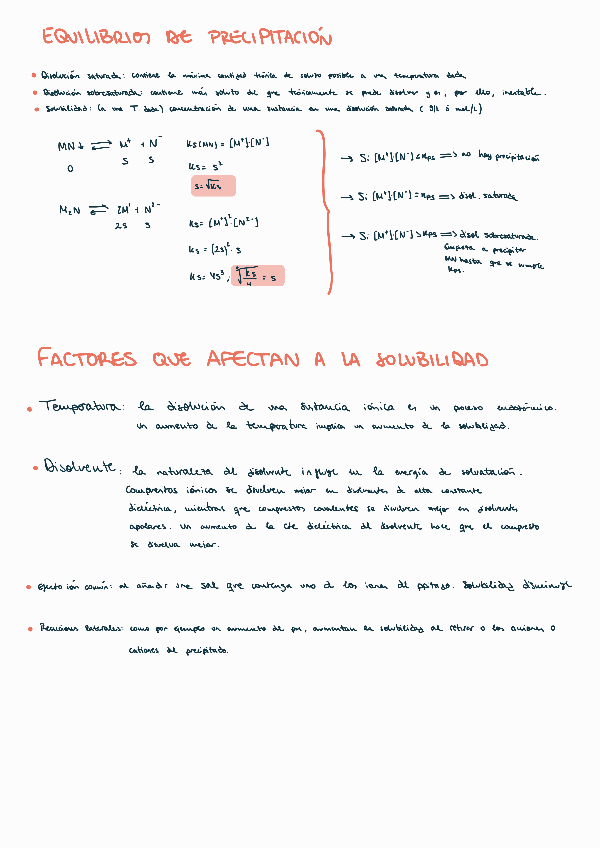 EQUILIBRIOS DE PRECIPITACIÓN
• Disolución saturada: contiene la máxima cantidad teórica de soluto posible a una temperatura dada.
• Disolución sobresaturada: contiene más soluto del que teóricamente se puede disolver y es, por ello, inestable.
• Solubilidad: (a una T dada) concentración de una sustancia en una disolución saturada ( g/L ó mol/L)
MN↓ ⇌ M⁺ + N⁻
0 S S
Ks(MN) = [M⁺]·[N⁻]
Ks = S²
S=√Ks
M₂N ⇌ 2M⁺ + N²⁻
2S S
Ks= [M⁺]²·[N²⁻]
Ks = (2S)²·S
Ks= 4S³; ∛(Ks/4) = S
→ Si [M⁺]·[N⁻] < Kps ⇒ no hay precipitación
→ Si [M⁺]·[N⁻] = Kps ⇒ disol. saturada
→ Si [M⁺]·[N⁻] > Kps ⇒ disol sobresaturada.
Empieza a precipitar
MN hasta que se cumple
Kps.
FACTORES QUE AFECTAN A LA SOLUBILIDAD
• Temperatura: la disolución de una sustancia iónica es un proceso endotérmico.
Un aumento de la temperatura implica un aumento de la solubilidad.
• Disolvente: la naturaleza del disolvente influye en la energía de solvatación.
Compuestos iónicos se disuelven mejor en disolventes de alta constante
dieléctrica, mientras que compuestos covalentes se disuelven mejor en disolventes
apolares. Un aumento de la cte dieléctrica del disolvente hace que el compuesto
se disuelva mejor.
• Efecto ión común: al añadir una sal que contenga uno de los iones del pptado. Solubilidad disminuye
• Reacciones laterales: como por ejemplo un aumento de pH, aumentan la solubilidad al retirar o los aniones o
cationes del precipitado.